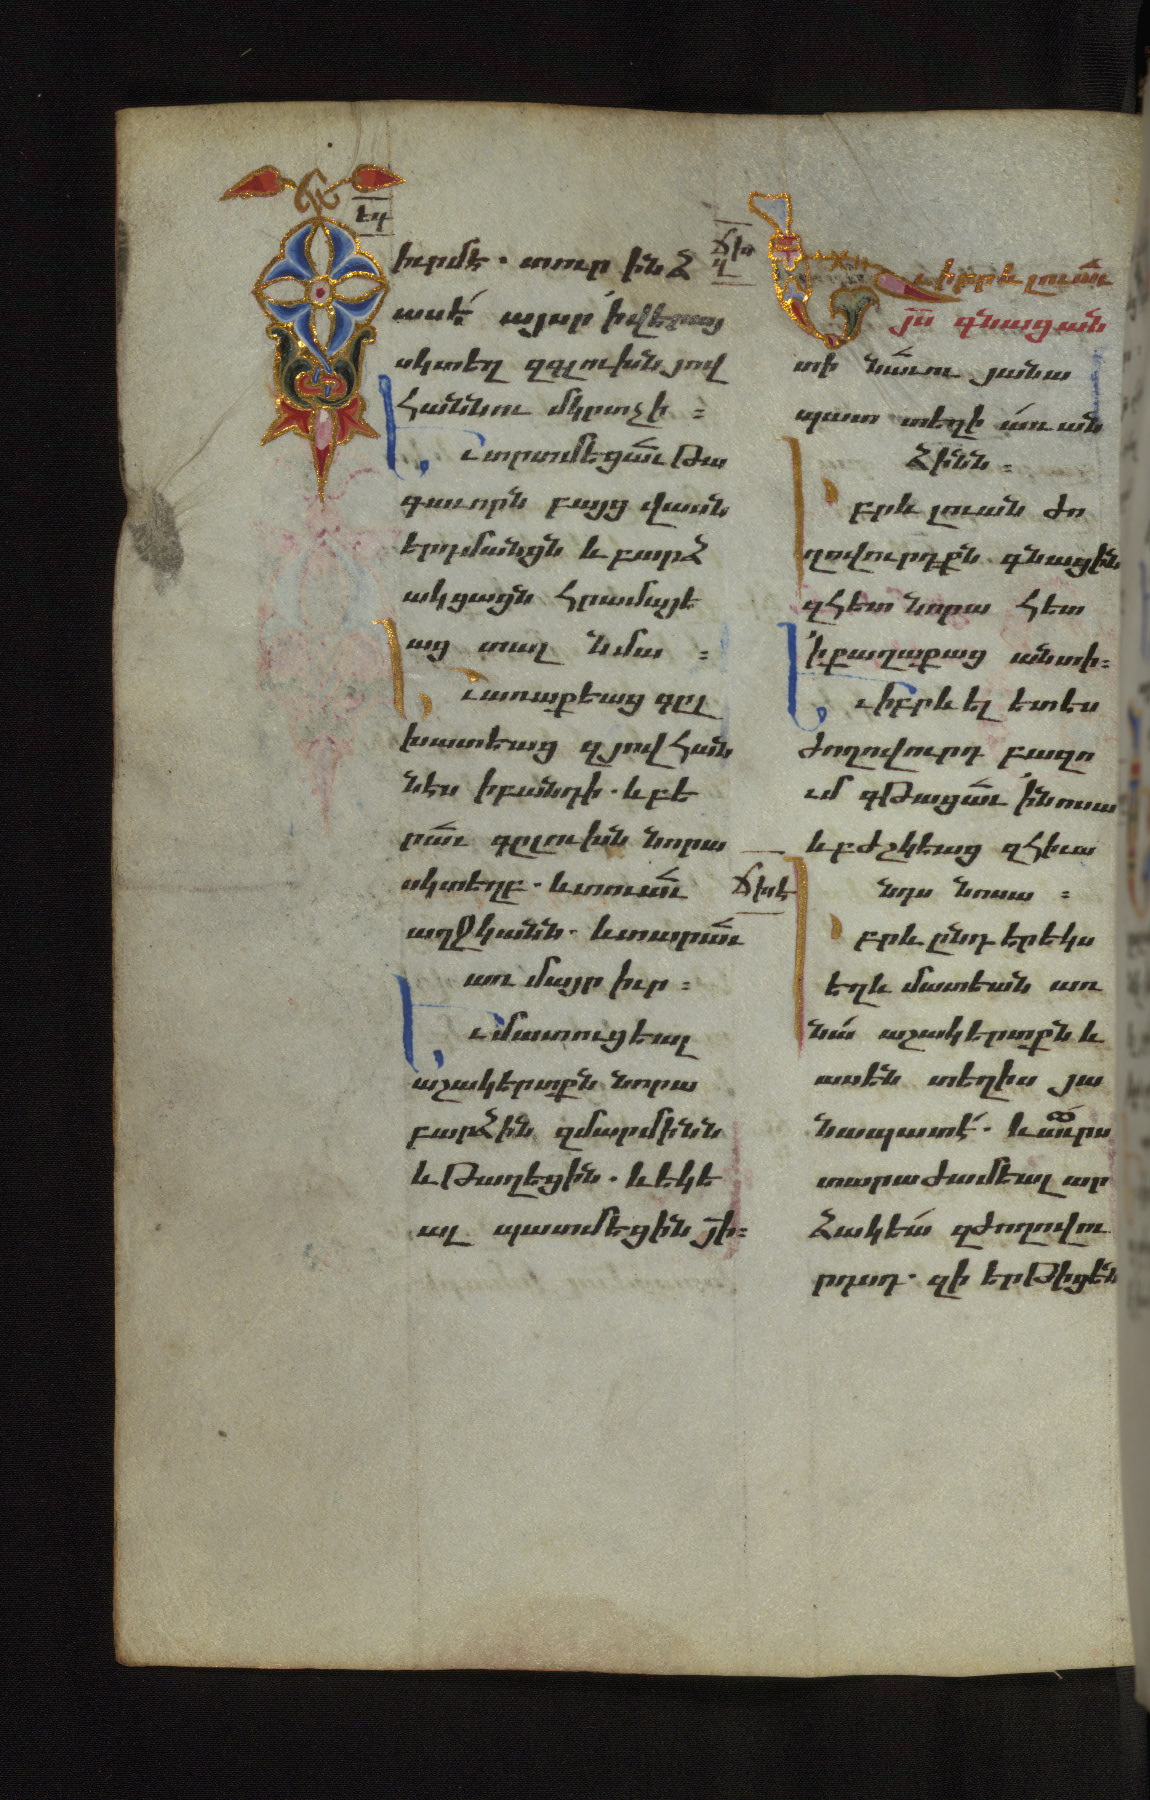 իւրմէ. տուր ինձ
ասէ՛ այսր ի վերայ
սկտեղ զգլուխն յով
հաննու մկրտչի :
Եւ տրտմեցաւ թա
գաւորն բայց վասն
երդմանցն և բարձ
ակցացն հրամայե
աց տալ նմա :
Եւ առաքեաց գըլ
խատեաց զյովհան
նէս ի բանդի. և բե
րաւ գըլուխն նորա
սկտեղբ. և տուաւ
աղջկանն. և տարաւ
առ մայր իւր :
Եւ մատուցեալ
աշակերտքն նորա
բարձին զմարմինն
և թաղեցին. և եկե
ալ պատմեցին յի :
Եւ իբրև լուաւ
յս գնաց ան
տի նաւու յանա
պատ տեղի առան
ձինն :
Իբրև լուան ժո
ղովուրդքն գնացին
զհետ նորա հետ
ի քաղաքաց անտի :
Եւ իբրև ել ետես
ժողովուրդ բազո
ւմ գթացաւ ի նոսա
և բժշկեաց զհիւա
նդս նոսա :
ճխէ
Իբրև ընդ երեկս
եղև մատեան առ
նա՛ աշակերտքն և
ասեն տեղիս յա
նապատ է՛. և աւուրս
տարաժամեալ ար
ձակեա՛ զժողովու
րդսդ. զի երթիցեն